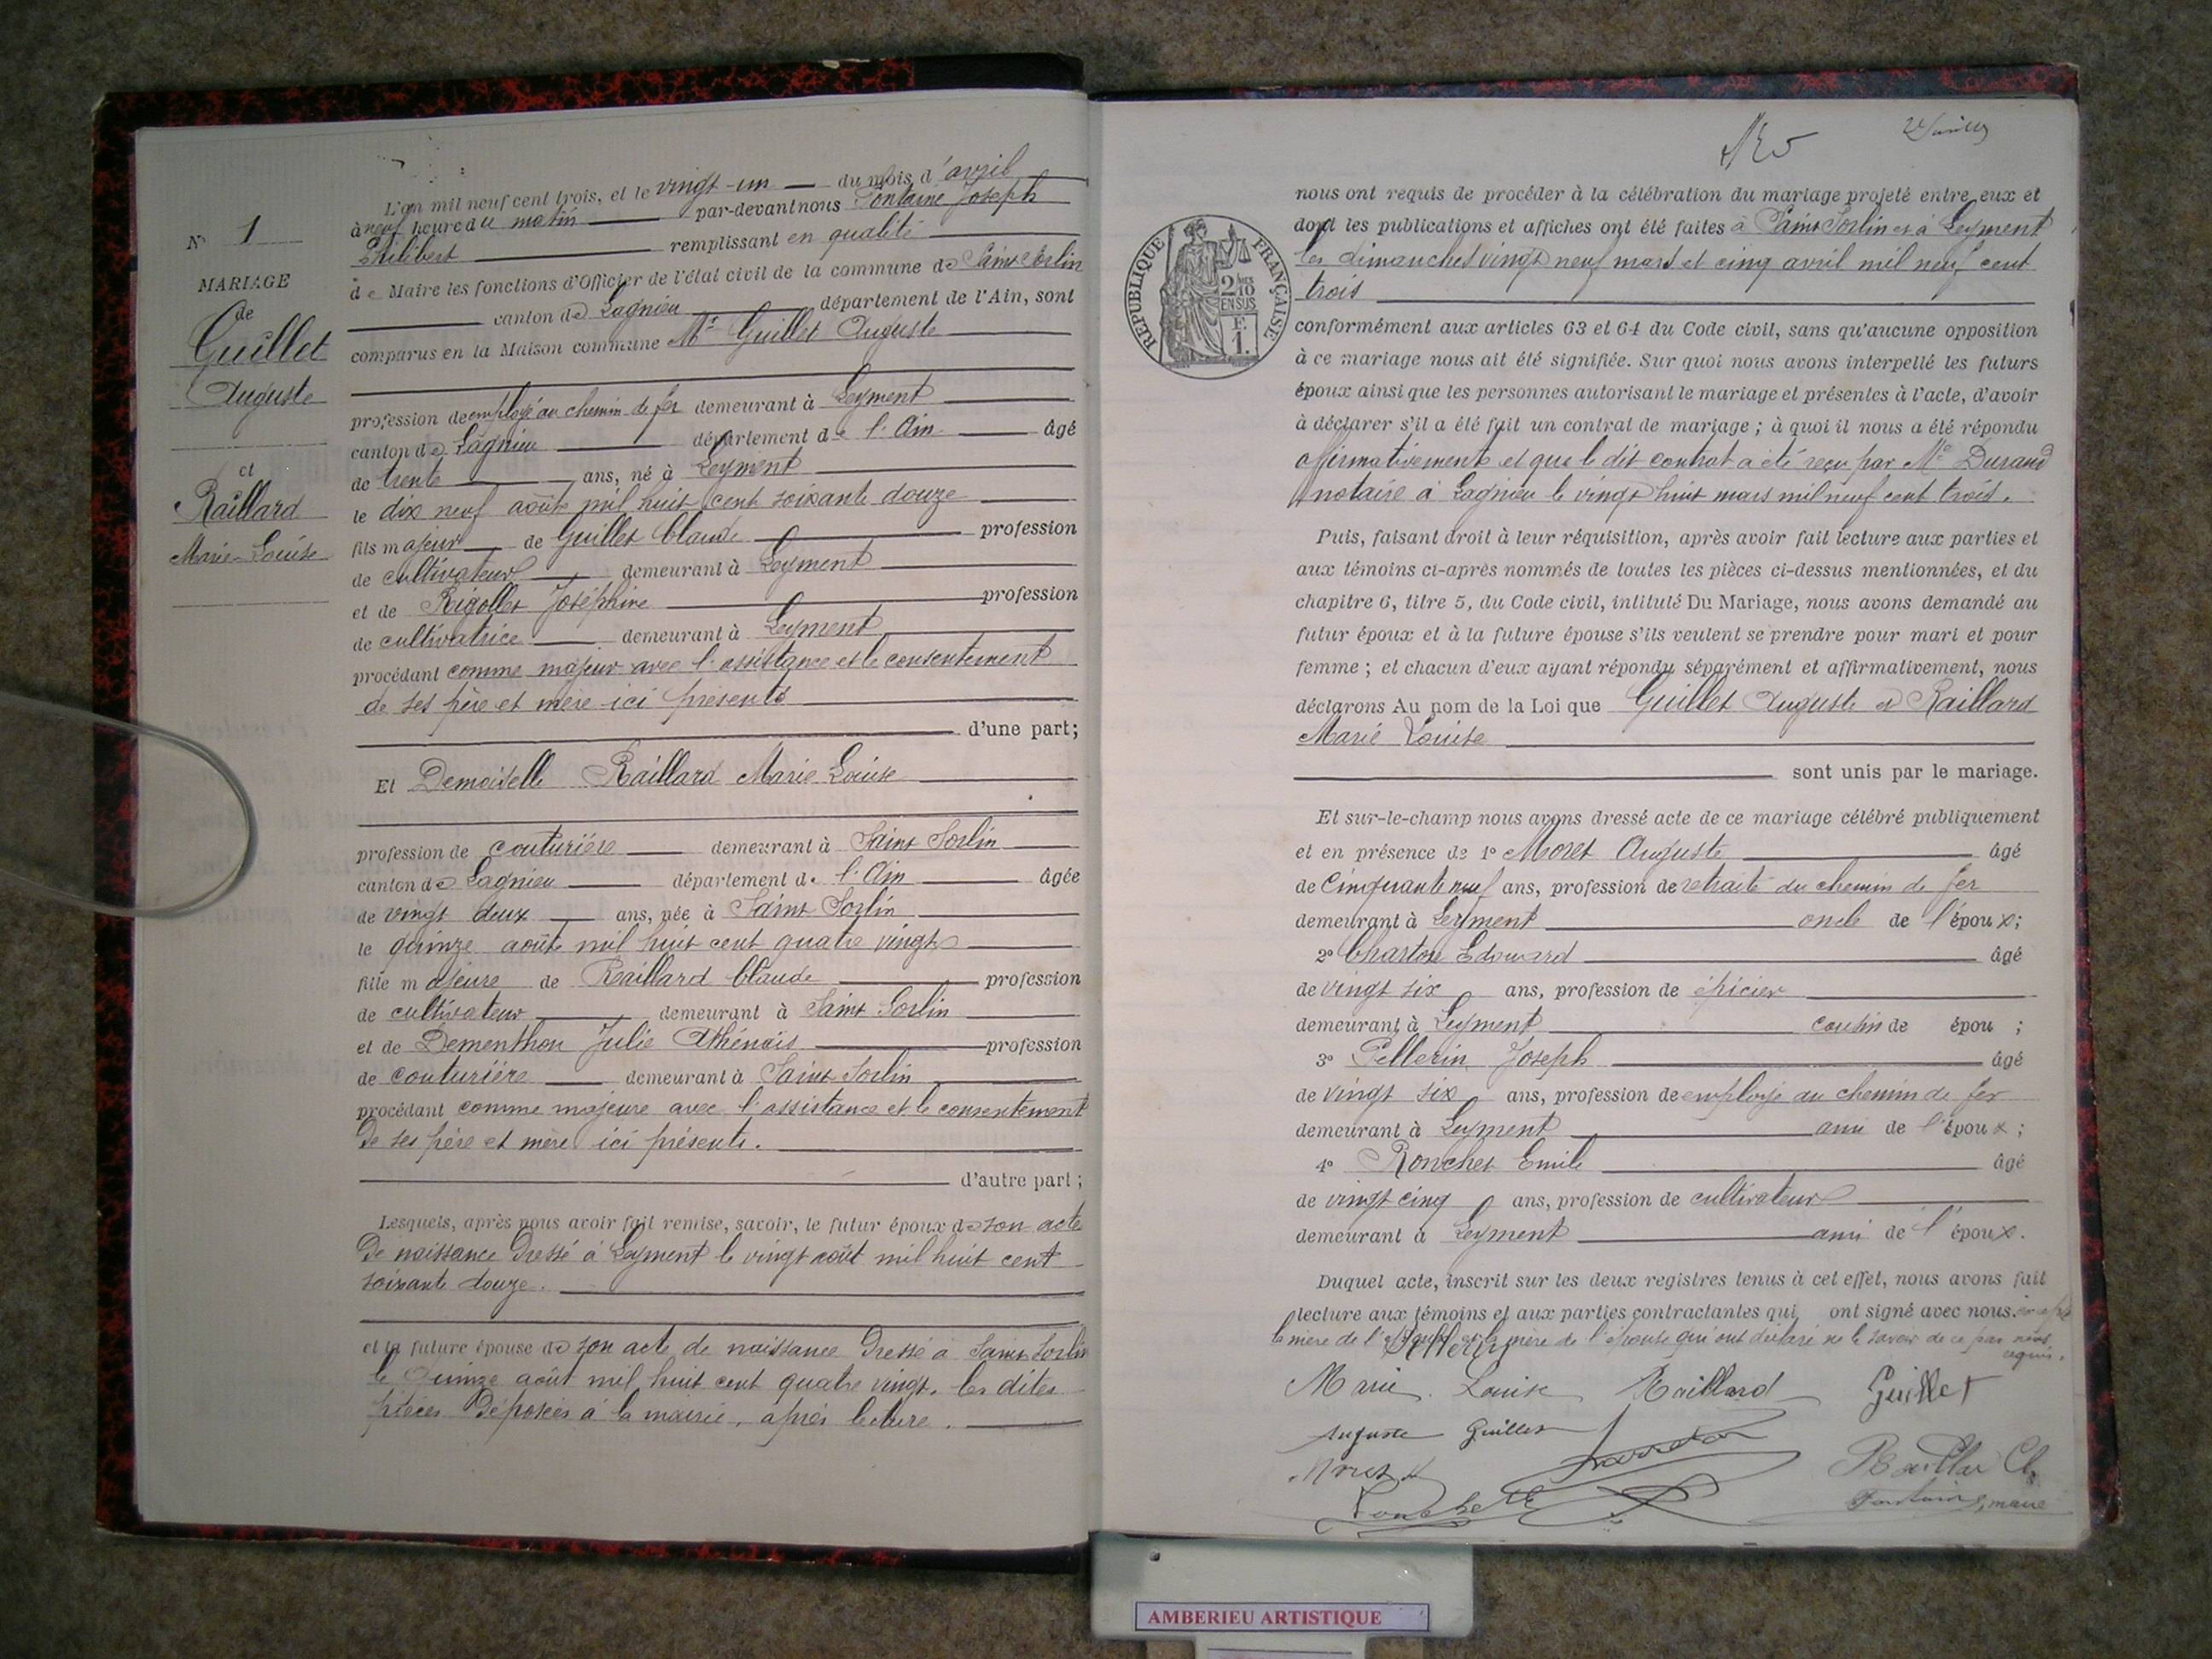 N° 1
MARIAGE
de
Guillet
Auguste
et
Raillard
Marie-Louise
L'an mil neuf cent trois, et le vingt-un du mois d'avril
à neuf heure du matin par-devant nous Fontaine Joseph
Philibert remplissant en qualité
de Maire les fonctions d'Officier de l'état civil de la commune de Saint Sorlin
canton de Lagnieu département de l'Ain, sont
comparus en la Maison commune Mr Guillet Auguste
profession de employé au chemin de fer demeurant à Leyment
canton de Lagnieu département de l'Ain âgé
de trente ans, né à Leyment
le dix neuf août mil huit cent soixante douze
fils majeur de Guillet Claude profession
de cultivateur demeurant à Leyment
et de Rigollet Joséphine profession
de cultivatrice demeurant à Leyment
procédant comme majeur avec l'assistance et le consentement
de ses père et mère ici présents
d'une part;
Et Demoiselle Raillard Marie Louise
profession de couturière demeurant à Saint Sorlin
canton de Lagnieu département de l'Ain âgée
de vingt deux ans, née à Saint Sorlin
le quinze août mil huit cent quatre vingts
fille majeure de Raillard Claude profession
de cultivateur demeurant à Saint Sorlin
et de Dementhon Julie Athénaïs profession
de couturière demeurant à Saint Sorlin
procédant comme majeure avec l'assistance et le consentement
de ses père et mère ici présents.
d'autre part;
Lesquels, après nous avoir fait remise, savoir, le futur époux de son acte
de naissance dressé à Leyment le vingt août mil huit cent
soixante douze.
et la future épouse de son acte de naissance dressé à Saint Sorlin
le quinze août mil huit cent quatre vingt. les dites
pièces déposées à la mairie, après lecture.
RÉPUBLIQUE FRANÇAISE
2/10
EN SUS
F.
1.
nous ont requis de procéder à la célébration du mariage projeté entre eux et
dont les publications et affiches ont été faites à Saint Sorlin et à Leyment
les dimanches vingt neuf mars et cinq avril mil neuf cent
trois
conformément aux articles 63 et 64 du Code civil, sans qu'aucune opposition
à ce mariage nous ait été signifiée. Sur quoi nous avons interpellé les futurs
époux ainsi que les personnes autorisant le mariage et présentes à l'acte, d'avoir
à déclarer s'il a été fait un contrat de mariage; à quoi il nous a été répondu
affirmativement et que le dit contrat a été reçu par Me Durand
notaire à Lagnieu le vingt huit mars mil neuf cent trois.
Puis, faisant droit à leur réquisition, après avoir fait lecture aux parties et
aux témoins ci-après nommés de toutes les pièces ci-dessus mentionnées, et du
chapitre 6, titre 5, du Code civil, intitulé Du Mariage, nous avons demandé au
futur époux et à la future épouse s'ils veulent se prendre pour mari et pour
femme; et chacun d'eux ayant répondu séparément et affirmativement, nous
déclarons Au nom de la Loi que Guillet Auguste et Raillard
Marie Louise
sont unis par le mariage.
Et sur-le-champ nous avons dressé acte de ce mariage célébré publiquement
et en présence de 1° Moret Auguste âgé
de Cinquante neuf ans, profession de retraité du chemin de fer
demeurant à Leyment oncle de l'époux;
2° Charton Edouard âgé
de vingt six ans, profession de épicier
demeurant à Leyment cousin de épou ;
3° Pellerin Joseph âgé
de vingt six ans, profession de employé au chemin de fer
demeurant à Leyment ami de l'époux;
4° Ronchet Emile âgé
de vingt cinq ans, profession de cultivateur
demeurant à Leyment ami de l'époux.
Duquel acte, inscrit sur les deux registres tenus à cet effet, nous avons fait
lecture aux témoins et aux parties contractantes qui ont signé avec nous.
la mère de l'époux et la mère de l'épouse qui ont déclaré ne le savoir de ce par nous
requis.
Pellerin
Marie Louise Raillard Guillet
Auguste Guillet
Moret
Raillard Cl.
Fontaine, maire
AMBERIEU ARTISTIQUE